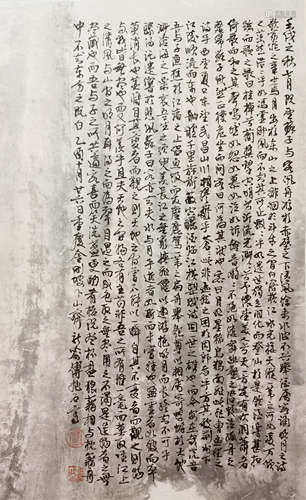 壬戌之秋七月既望蘇子與客汎舟游於赤壁之下清風徐來水波不興舉酒屬客誦明月之詩
歌窈窕之章少焉月出於東山之上徘徊於斗牛之間白露橫江水光接天縱一葦之所如凌萬頃
之茫然浩浩乎如馮虛御風而不知其所止飄飄乎如遺世獨立羽化而登仙於是飲酒樂甚扣
舷而歌之歌曰桂棹兮蘭槳擊空明兮泝流光渺渺兮予懷望美人兮天一方客有吹洞簫者
倚歌而和之其聲嗚嗚然如怨如慕如泣如訴餘音嫋嫋不絕如縷舞幽壑之潛蛟泣孤舟之
嫠婦蘇子愀然正襟危坐而問客曰何為其然也客曰月明星稀烏鵲南飛此非曹孟德之
詩乎西望夏口東望武昌山川相繆鬱乎蒼蒼此非孟德之困於周郎者乎方其破荊州下
江陵順流而東也舳艫千里旌旗蔽空釃酒臨江橫槊賦詩固一世之雄也而今安在哉況
吾與子漁樵於江渚之上侶魚蝦而友麋鹿駕一葉之扁舟舉匏尊以相屬寄蜉蝣於天地
渺滄海之一粟哀吾生之須臾羨長江之無窮挾飛仙以遨遊抱明月而長終知不可乎
驟得託遺響於悲風蘇子曰客亦知夫水與月乎逝者如斯而未嘗往也盈虛者如彼而卒
莫消長也蓋將自其變者而觀之則天地曾不能以一瞬自其不變者而觀之則物
與我皆無盡也而又何羨乎且夫天地之間物各有主苟非吾之所有雖一毫而莫取惟江上
之清風與山間之明月耳得之而為聲目遇之而成色取之無禁用之不竭是造物者之無
盡藏也而吾與子之所共食客喜而笑洗盞更酌肴核既盡杯盤狼藉相與枕藉乎舟
中不知東方之既白 乙酉十月廿六日 山齋新喻傅抱石